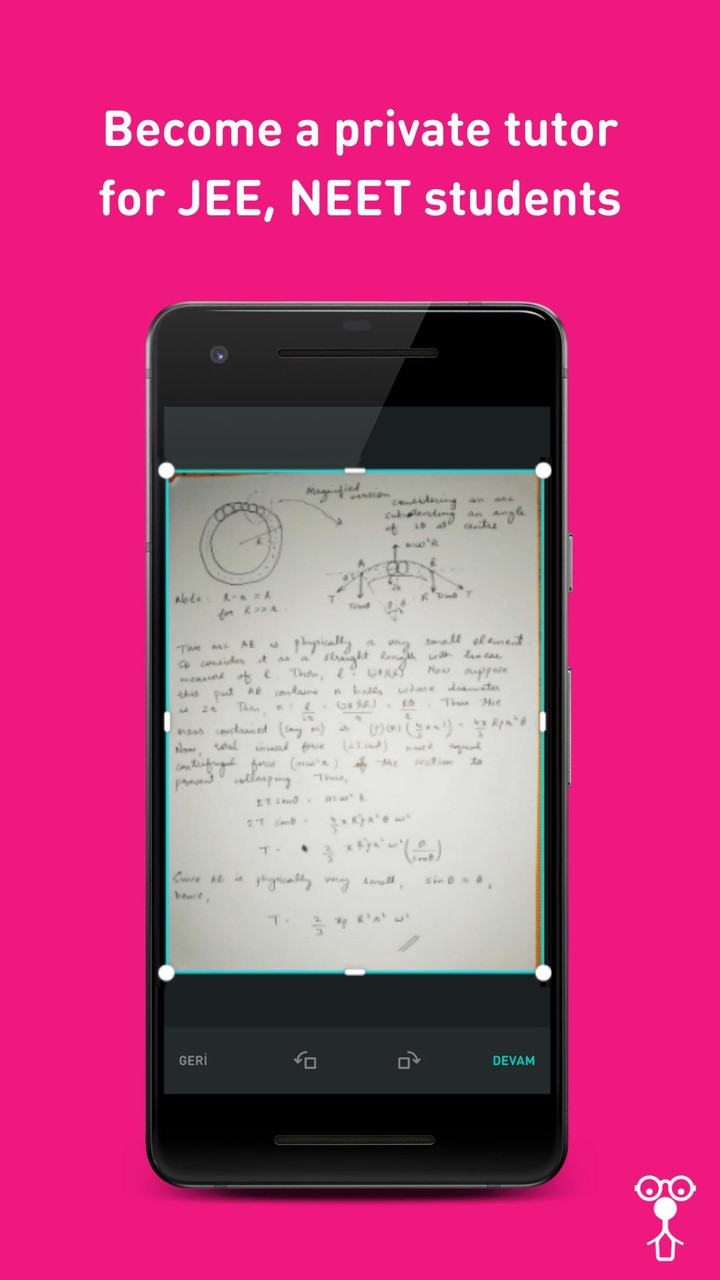 Become a private tutor
for JEE, NEET students
Magnified
version
considering an arc
subtending an angle
of 2θ at centre
R
mω²R
A
B
T
Tcosθ
R
Tcosθ
T
Note: R-r = R
for R>>r.
This arc AB is physically a very small element.
So consider it as a straight length with linear
measure of l. Then, l = (2θR). Now suppose
this part AB contains n balls whose diameter
is 2r. Then, n = Thus the
mass contained (say m) is
Now, total inward force (2T sinθ) must equal
centrifugal force (mω²R) of the section to
prevent collapsing. Thus,
2T sinθ = mω²R
2T sinθ =
T =
Since AB is physically very small, sinθ ≈ θ,
hence,
T = 2/3 πρ R²r² ω²
GERİ
DEVAM